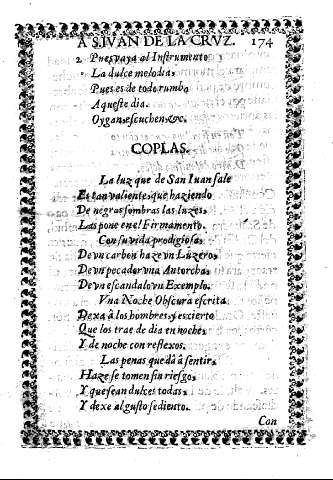 A S. IVAN DE LA CRVZ. 174
2. Pues vaya al Instrumento
La dulce melodia,
Pues es de todo rumbo
Aqueste dia.
Oygan, escuchen, &c.
COPLAS.
La luz que de San Iuan sale
Es tan valiente, que haziendo
De negras sombras las luzes,
Las pone en el Firmamento.
Con su vida prodigiosa,
De vn carbon haze vn Luzero,
De vn pecador vna Antorcha,
De vn escandalo vn Exemplo.
Vna Noche Obscura escrita
Dexa â los hombres, y es cierto
Que los trae de dia en noche,
Y de noche con reflexos.
Las penas que dà â sentir,
Haze se tomen sin riesgo,
Y que sean dulces todas,
Y dexe al gusto sediento.
Con